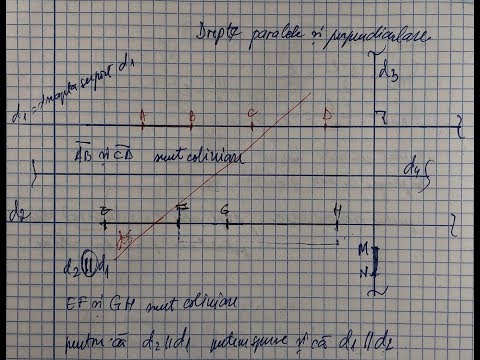 Drepte paralele și perpendiculare
d1 = dreapta suport d1
d3
A B C D
AB și CD sunt coliniare
d4
d2
E F G H
d5
M
N
d2 || d1
EF și GH sunt coliniare
pentru că d2 || d1 putem spune și că d1 || d2